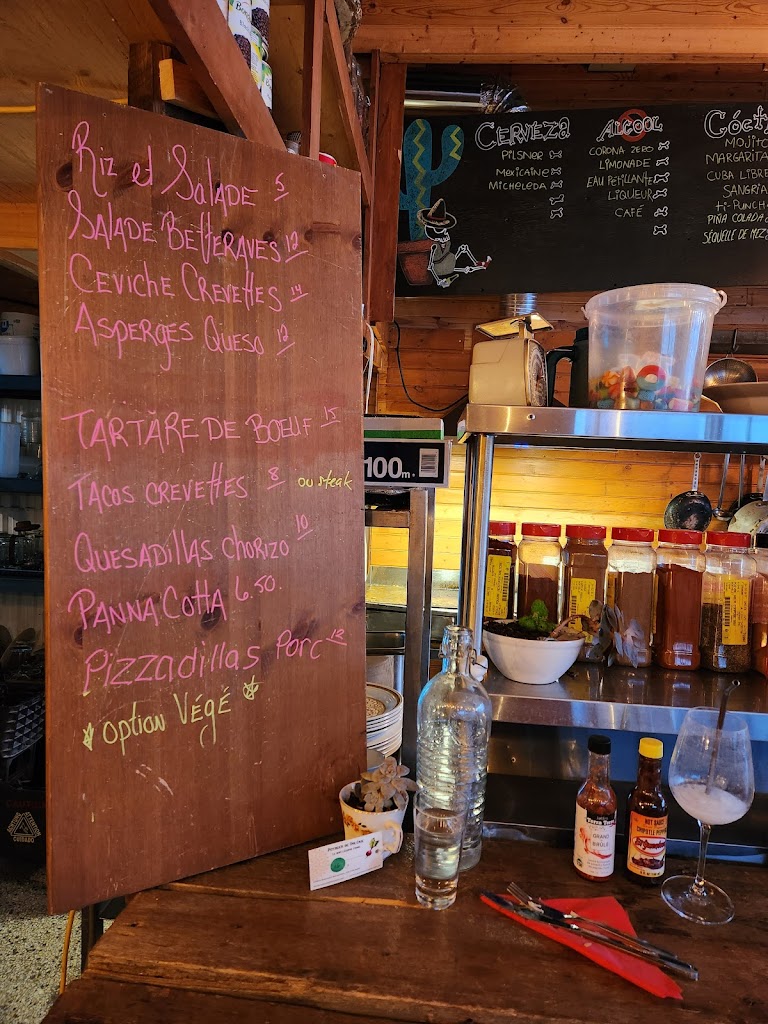 Riz et Salade 5
Salade Betteraves 12
Ceviche Crevettes 14
Asperges Queso 12
Tartare de Boeuf 15
Tacos crevettes 8 ou steak
Quesadillas chorizo 10
Panna Cotta 6.50
Pizzadillas Porc 12
option Végé
Cerveza
Pilsner
Mexicaine
Micheleda
Alcool
Corona Zero
Limonade
Eau Pétillante
Liqueur
Café
Mojito
Margarita
Cuba Libre
Sangria
Ti-Punch
Piña Colada
100m
Hot Sauce
Chipotle Pepper